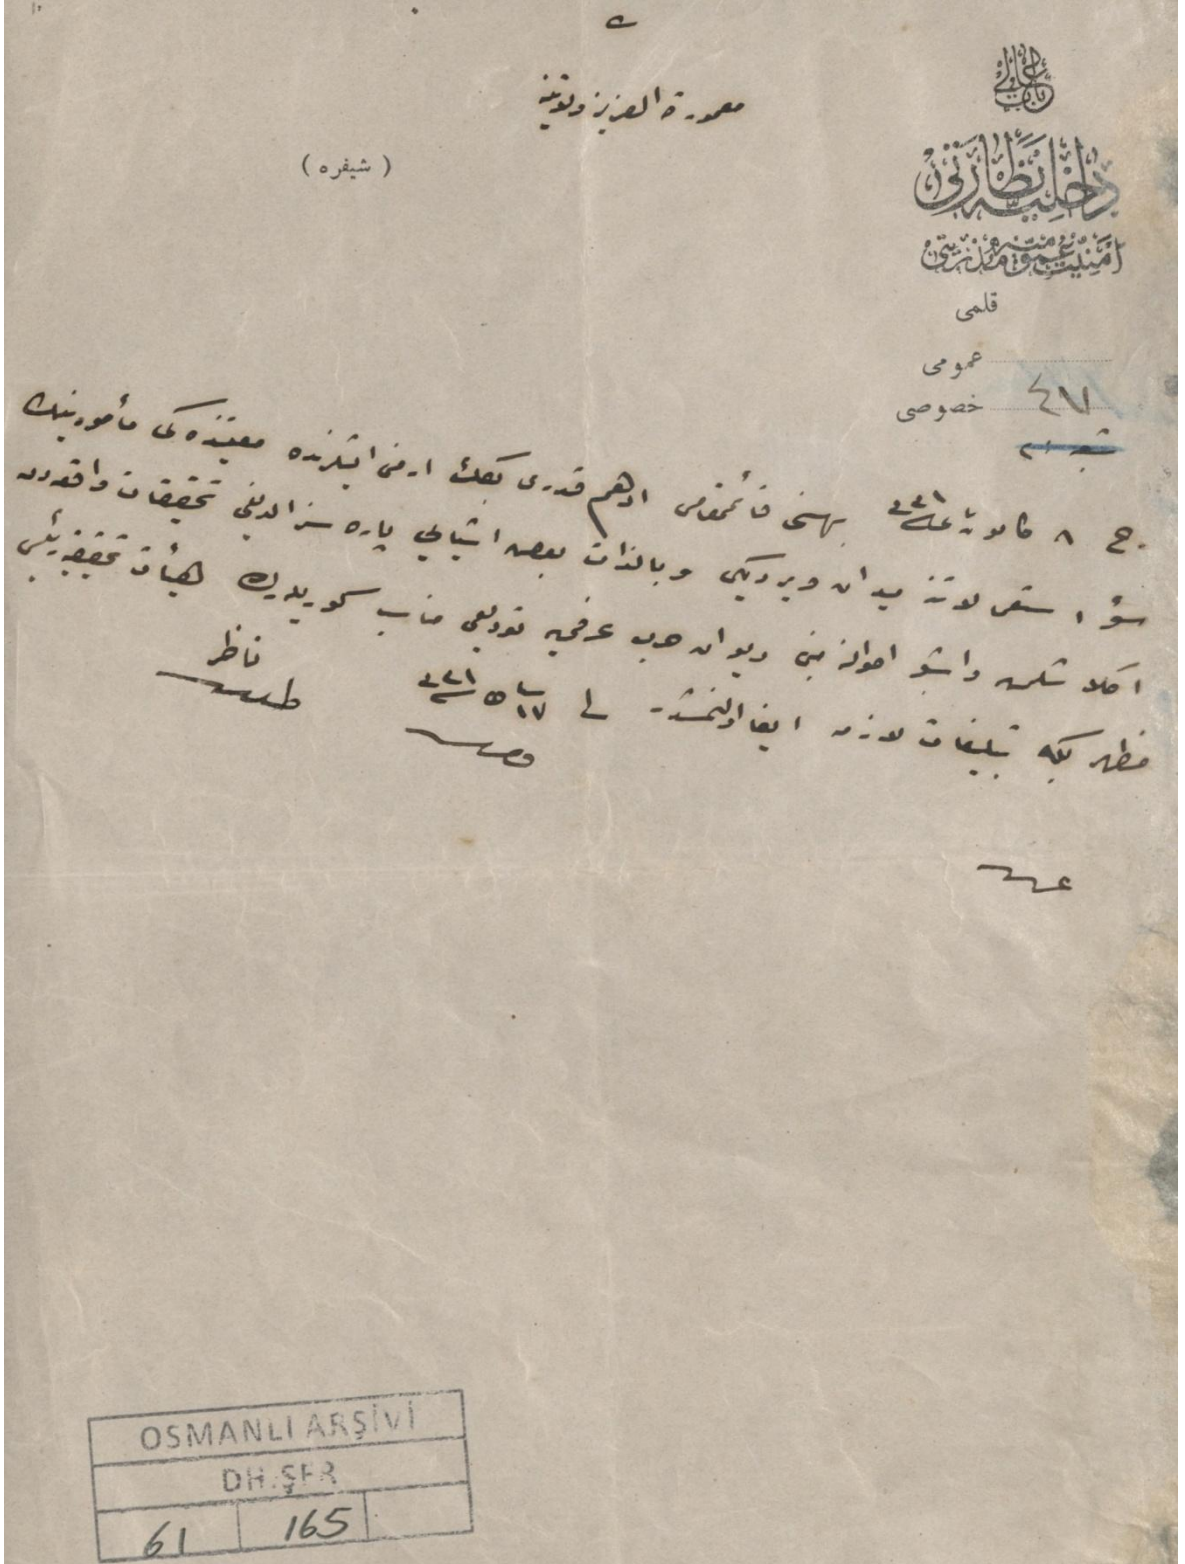 باب عالی
داخلیه نظارتی
امنیت عمومیه مدیریتی
قلمی
عمومی
خصوصی ٤٧
معمورة العزیز ولایتنه
( شیفره )
ج ٨ کانون ثانی ٣٣١ بهسنی قائمقامی ادهم قدری بکك ارمنی ایشلرنده معیتنده کی مأمورینك
سؤ استعمالاتنه میدان ویردیکی وبالذات بعض اشیایی پاره سز الدیغی تحقیقات واقعه دن
اکلاشلمش واشبو احوالنه مبنی دیوان حرب عرفی یه تودیعی مناسب کوریله رك هیأت تحقیقیه رئیسی
مظهر بکه تبلیغات لازمه ایفا اولنمشدر فی ١٧ ٣٣١
ناظر
طلعت
OSMANLI ARŞİVİ
DH.ŞFR
61 165